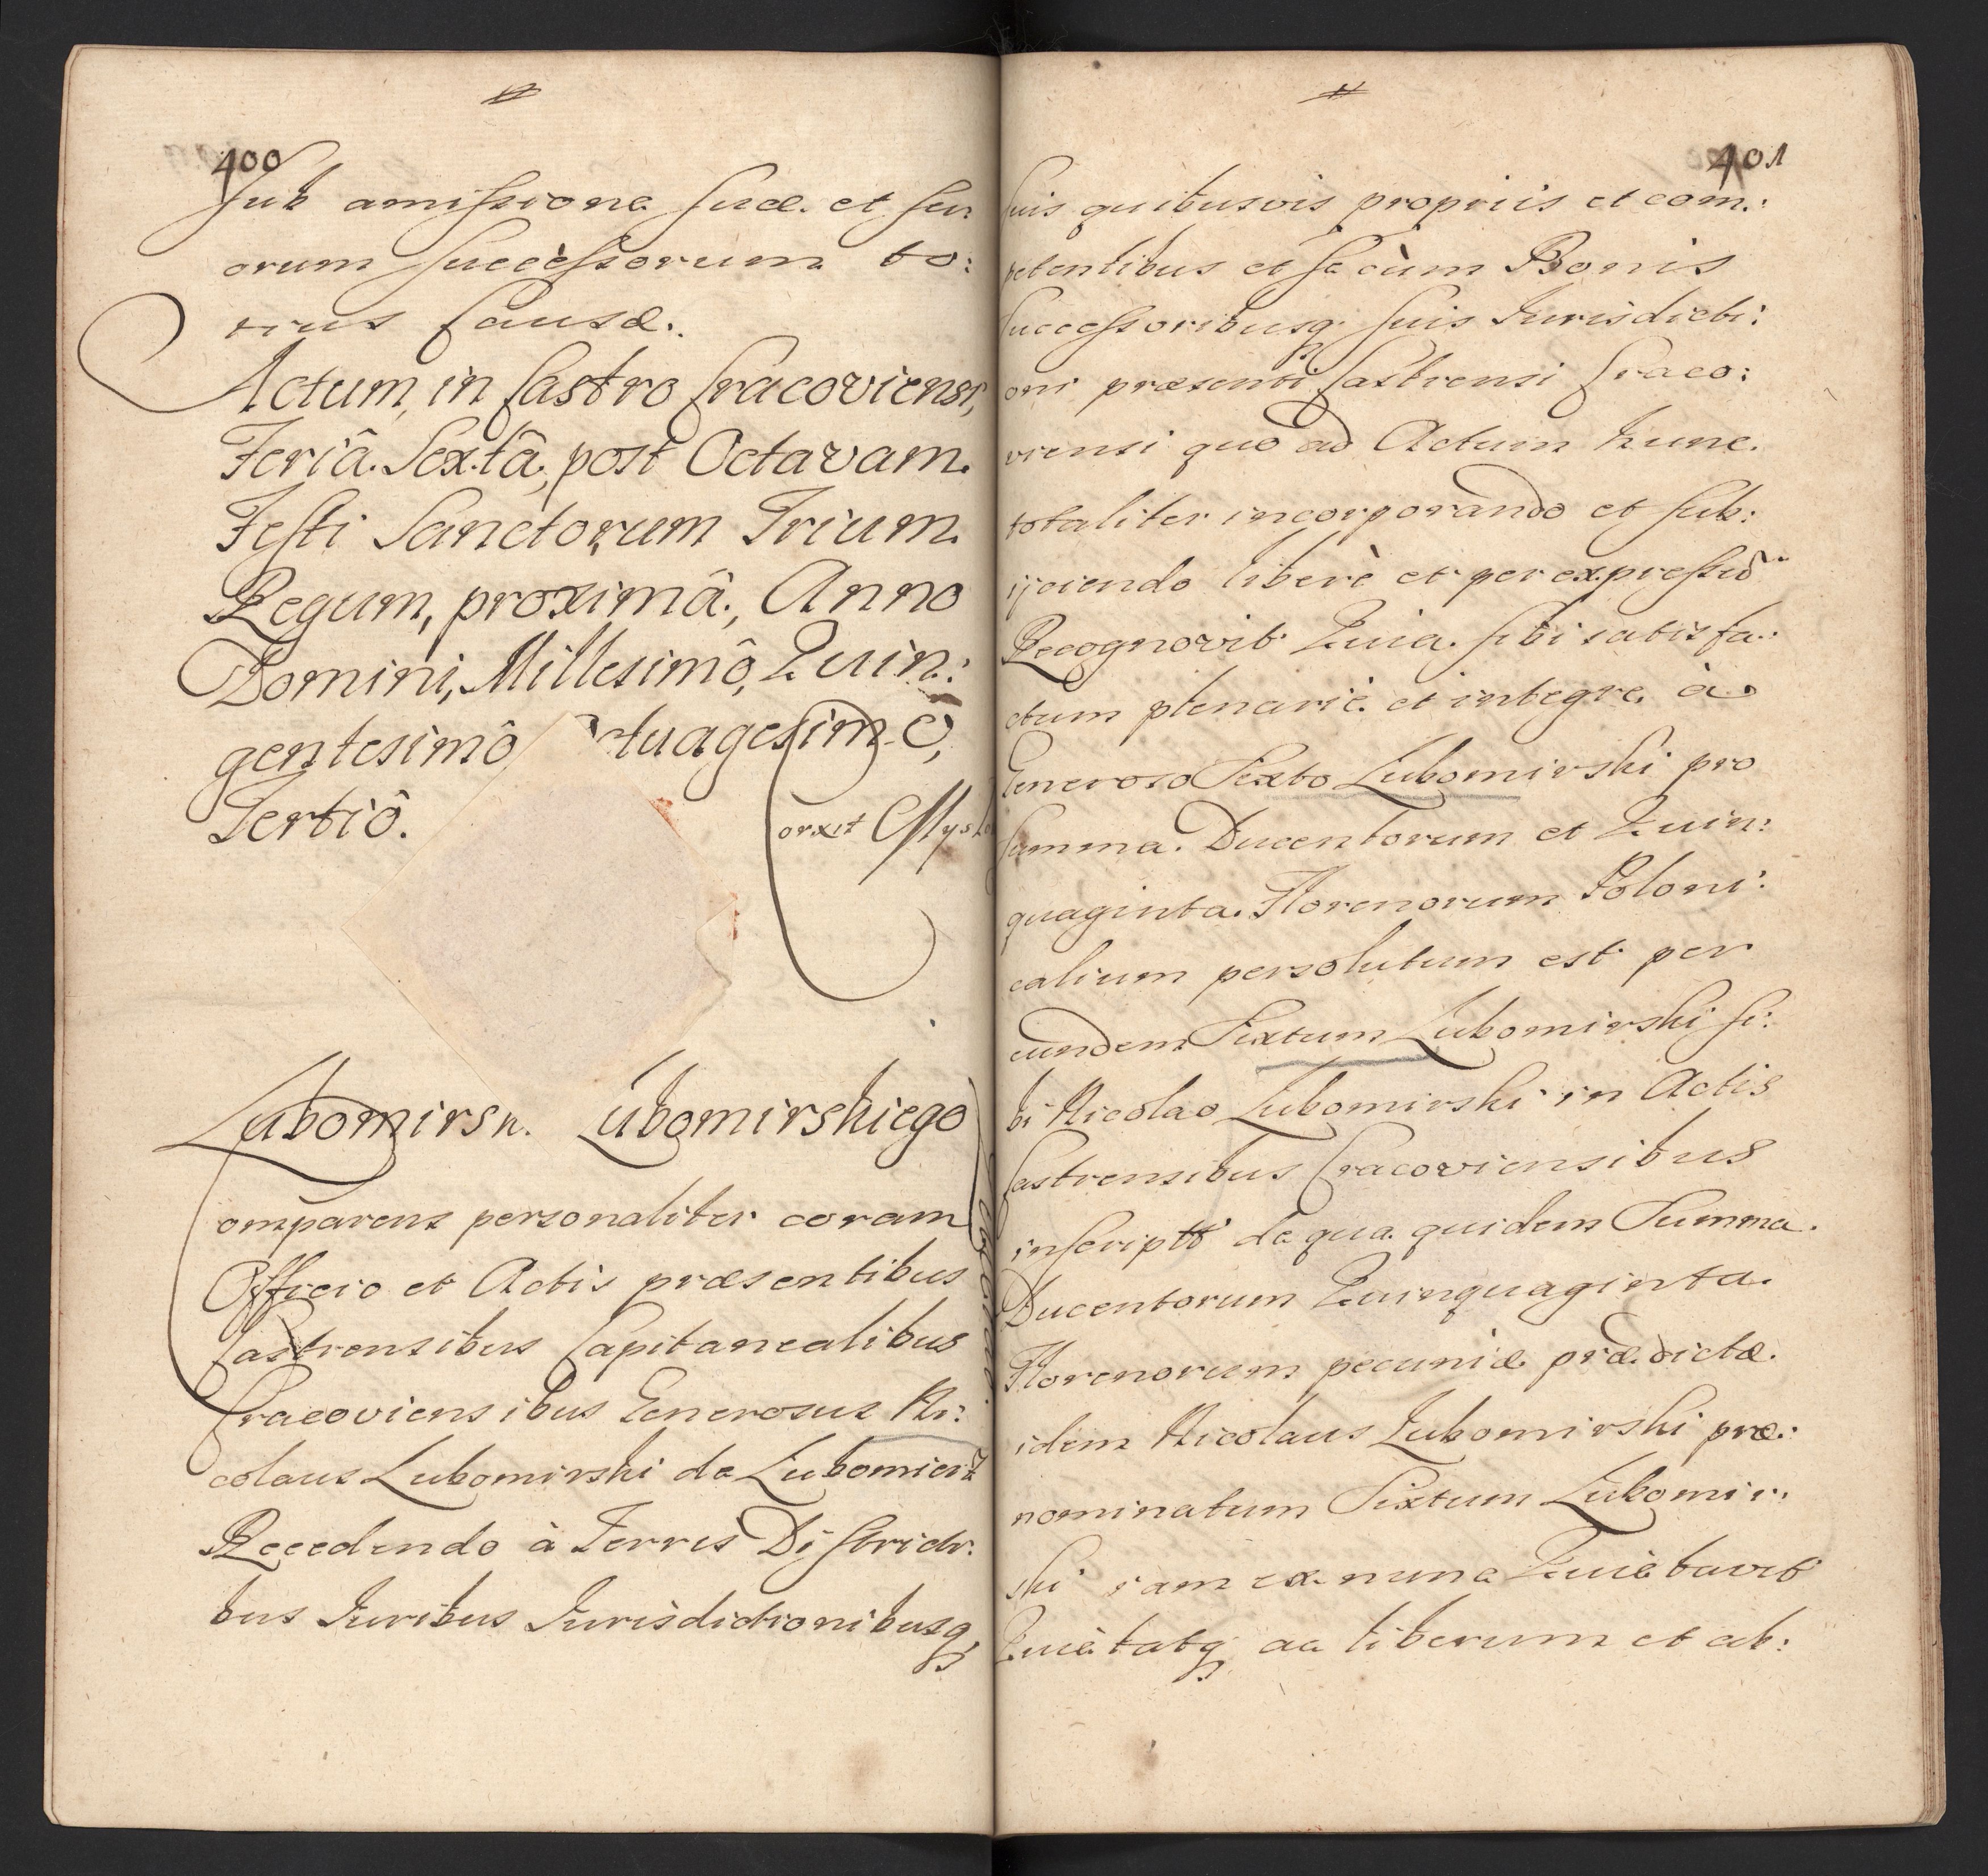 400
Sub amissione suæ et su:
orum successorum to:
tius Causæ.
Actum, in Castro Cracoviensi,
Feriâ Sextâ, post Octavam
Festi Sanctorum Trium
Regum, proximâ, Anno
Domini, Millesimô, Quin:
gentesimô tuagesimô,
Tertiô.
Lubomirsk. Lubomirskiego
omparens personaliter coram
Officio et Actis præsentibus
Castrensibus Capitanealibus
Cracoviensibus Generosus Ni:
colaus Lubomirski de Lubomierz
Recedendo à Terris Districti:
bus Iuribus Iurisdictionibusq
401
suis quibusvis propriis et com:
petentibus et se cùm Bonis
Successoribusq suis Iurisdicti:
oni præsenti Castrensi Craco:
viensi quo ad Actum hunc
totaliter incorporando et sub:
ijciendo liberè et per expressũ
Recognovit Quia sibi satisfa:
ctum plenariè et integre à
Generoso Sixto Lubomirski pro
summa Ducentorum et Quin:
quaginta Florenorum Poloni:
calium persolutum est per
eundem Sixtum Lubomirski si:
bi Nicolao Lubomirski in Actis
Castrensibus Cracoviensibus
inscriptt de qua quidem Summa
Ducentorum Quinquaginta
Florenorum pecuniæ prædictæ
idem Nicolaus Lubomirski præ:
nominatum Sixtum Lubomir:
ski iam ex nunc Quietavit
Quietatq ac liberum et ab: